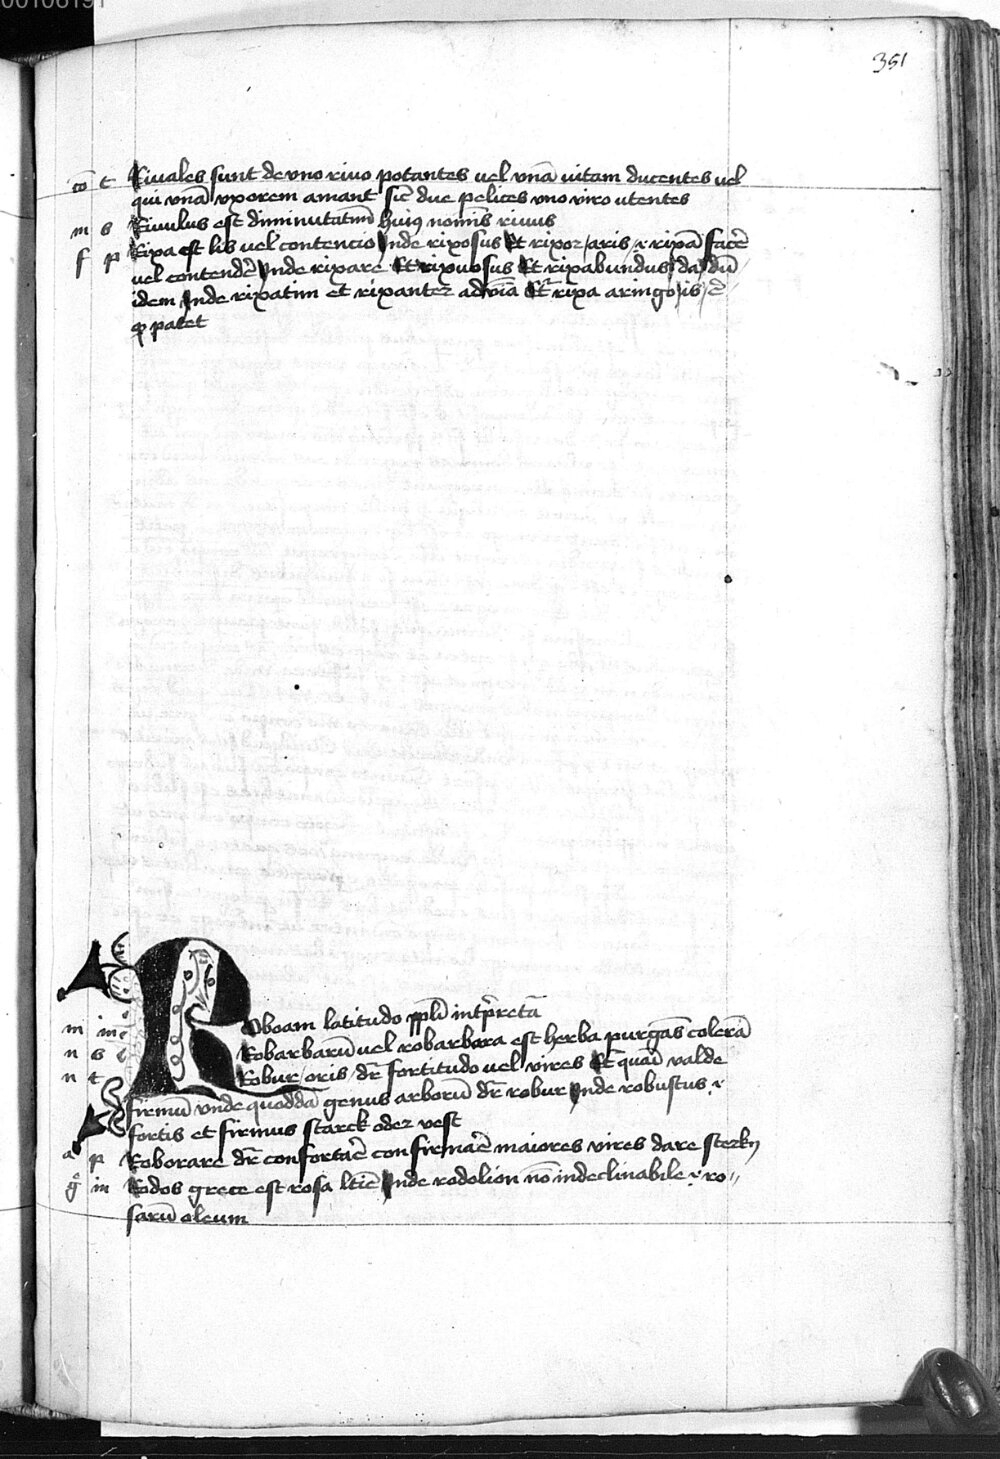 00106191
351
co t Riuales sunt de vno riuo potantes uel vnā uitam ducentes uel
qui vnā vxorem amant sic due pelices vno viro utentes
m s Riuulus est diminutatiuū huiꝰ nominis riuus
f p Rixa est lis uel contencio Inde rixosus Et rixor /aris /r̄ rixā facē
uel contendē Inde rixare Et rixuosus Et rixabundus /da /dū
idem Inde rixatim et rixanter aduīa Et rixa a ringo /is /
patet
m in Roboam latitudo ppli intp̄retā
n s Robarbarū uel robarbara est herba purgās colerā
n t Robur /oris /dr̄ fortitudo uel vires Et valde
firmū vnde quoddā genus arborū dr̄ robur Inde robustus .r̄
fortis et firmus starck oder vest
a p Roborare dr̄ confortaē confirmaē maiores vires dare sterkn
g in Rodos grece est rosa ltīe Inde rodolion nō indeclinabile .r̄ ro-
sarū oleum